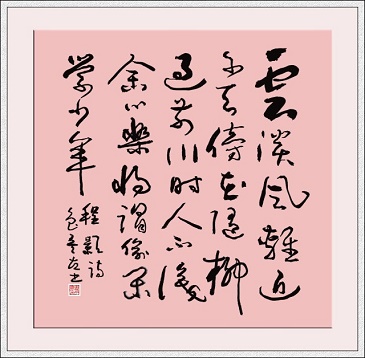 雲淡风輕近
午天傍花随柳
过前川时人不識
余心樂将謂偷闲
学少年
程颢诗